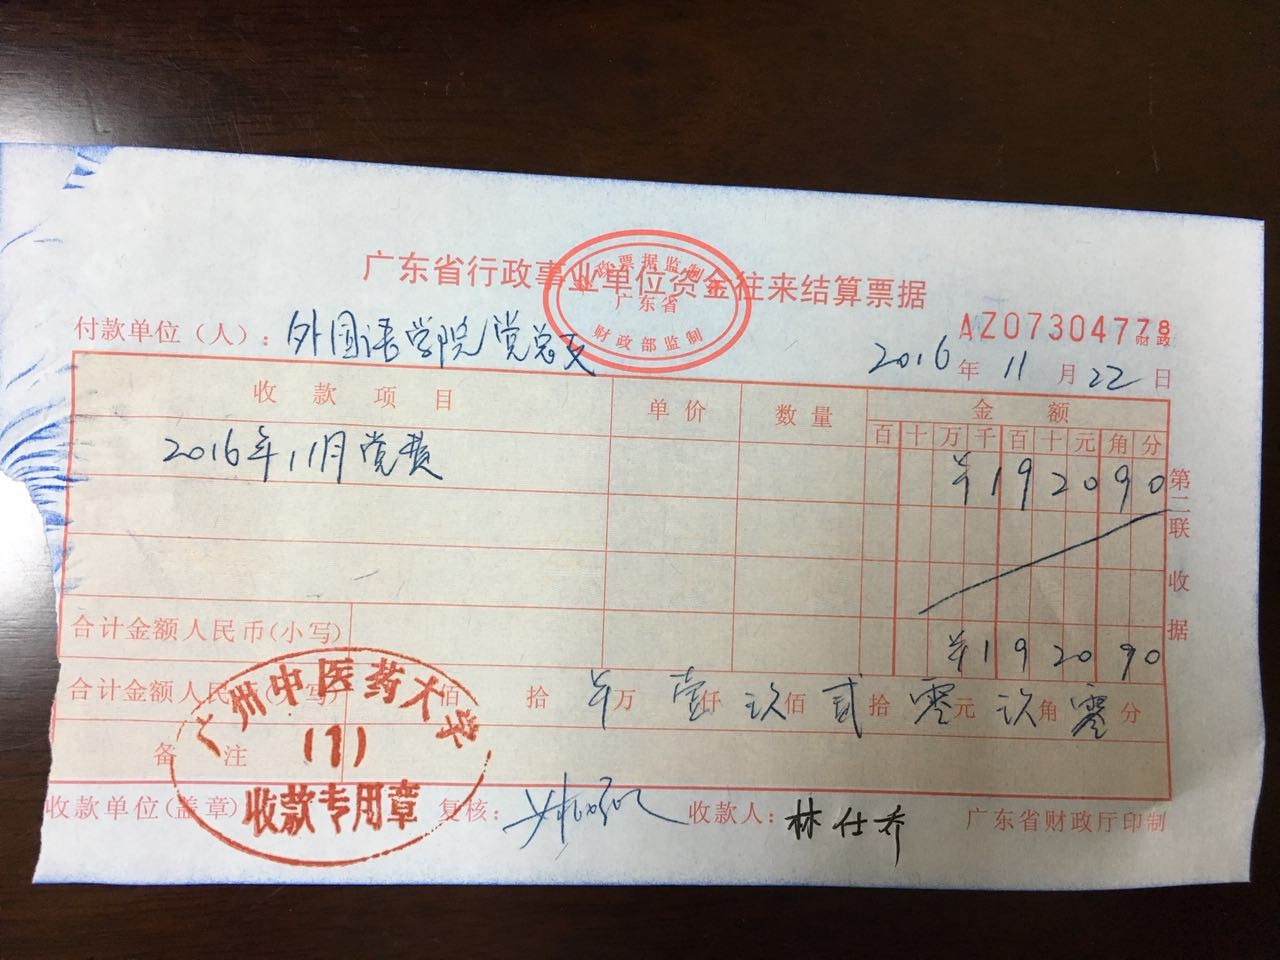 广东省行政事业单位资金往来结算票据
财政票据监制章
广东省
财政部监制
AZ07304778
财政
付款单位（人）：外国语学院党总支
2016年11月22日
收款项目 单价 数量 金额
百十万千百十元角分
2016年11月党费 ¥192090
第二联 收据
合计金额人民币(小写) ¥192090
合计金额人民币(大写) 佰 拾 ¥万 壹仟 玖佰 贰拾 零元 玖角 零分
备注
广州中医药大学
(1)
收款专用章
收款单位(盖章) 复核： 收款人：林仕乔 广东省财政厅印制